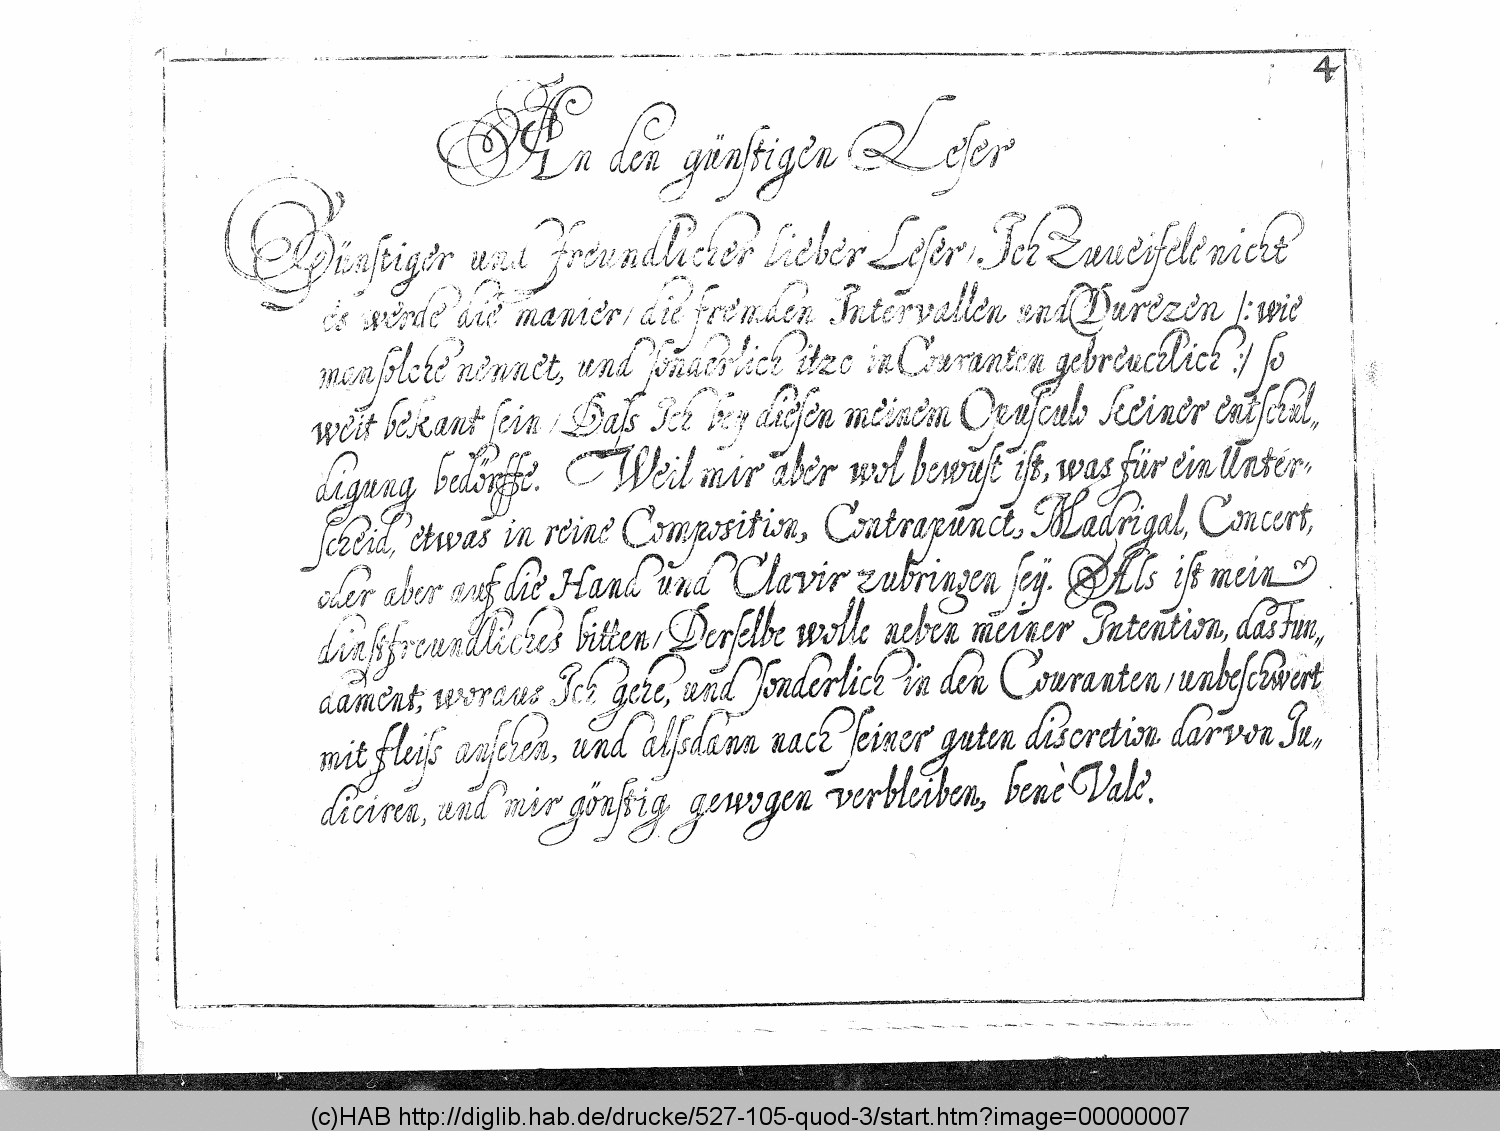 4
An den günstigen Leser
Günstiger und freundlicher lieber Leser/ Ich Zuueifele nicht
es werde die manier/ die fremden Intervallen und Durezen /: wie
man solche nennet, und sonderlich itzo in Couranten gebreuchlich :/ so
weit bekant sein / Dass Ich bey diesen meinem Opusculo keiner entschul„
digung bedörffe. Weil mir aber wol bewust ist, was für ein Unter„
scheid, etwas in reine Composition, Contrapunct, Madrigal, Concert,
oder aber auf die Hand und Clavir zubringen seÿ. Als ist mein
dinstfreundliches bitten/ Derselbe wolle neben meiner Intention, das Fun„
dament, woraus Ich gehe, und sonderlich in den Couranten / unbeschwert
mit fleiss ansehen, und alssdann nach seiner guten discretion darvon Ju„
diciren, und mir gönstig gewogen verbleiben, benè Vale.
(c)HAB http://diglib.hab.de/drucke/527-105-quod-3/start.htm?image=00000007